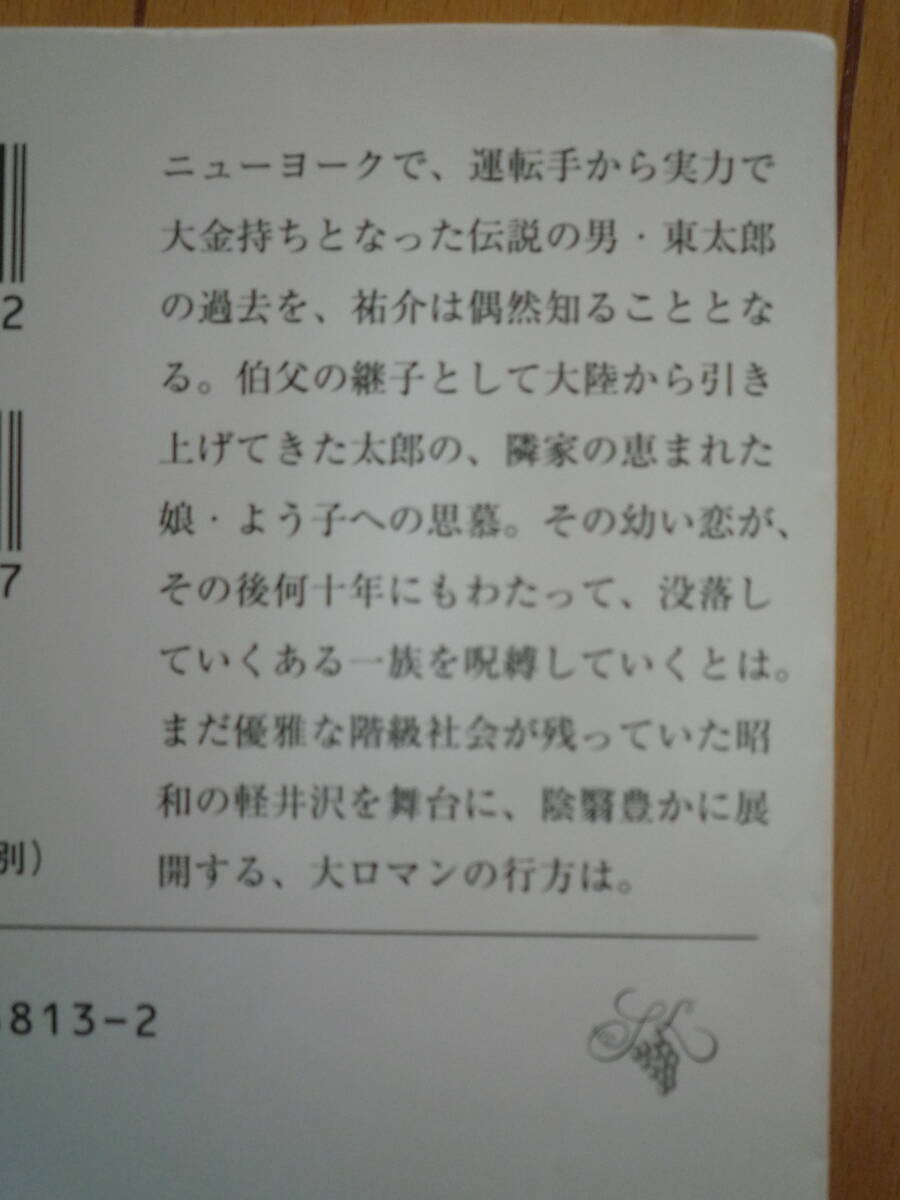 ニューヨークで、運転手から実力で
大金持ちとなった伝説の男・東太郎
の過去を、祐介は偶然知ることとな
る。伯父の継子として大陸から引き
上げてきた太郎の、隣家の恵まれた
娘・よう子への思慕。その幼い恋が、
その後何十年にもわたって、没落し
ていくある一族を呪縛していくとは。
まだ優雅な階級社会が残っていた昭
和の軽井沢を舞台に、陰翳豊かに展
開する、大ロマンの行方は。
2
7
別)
813-2